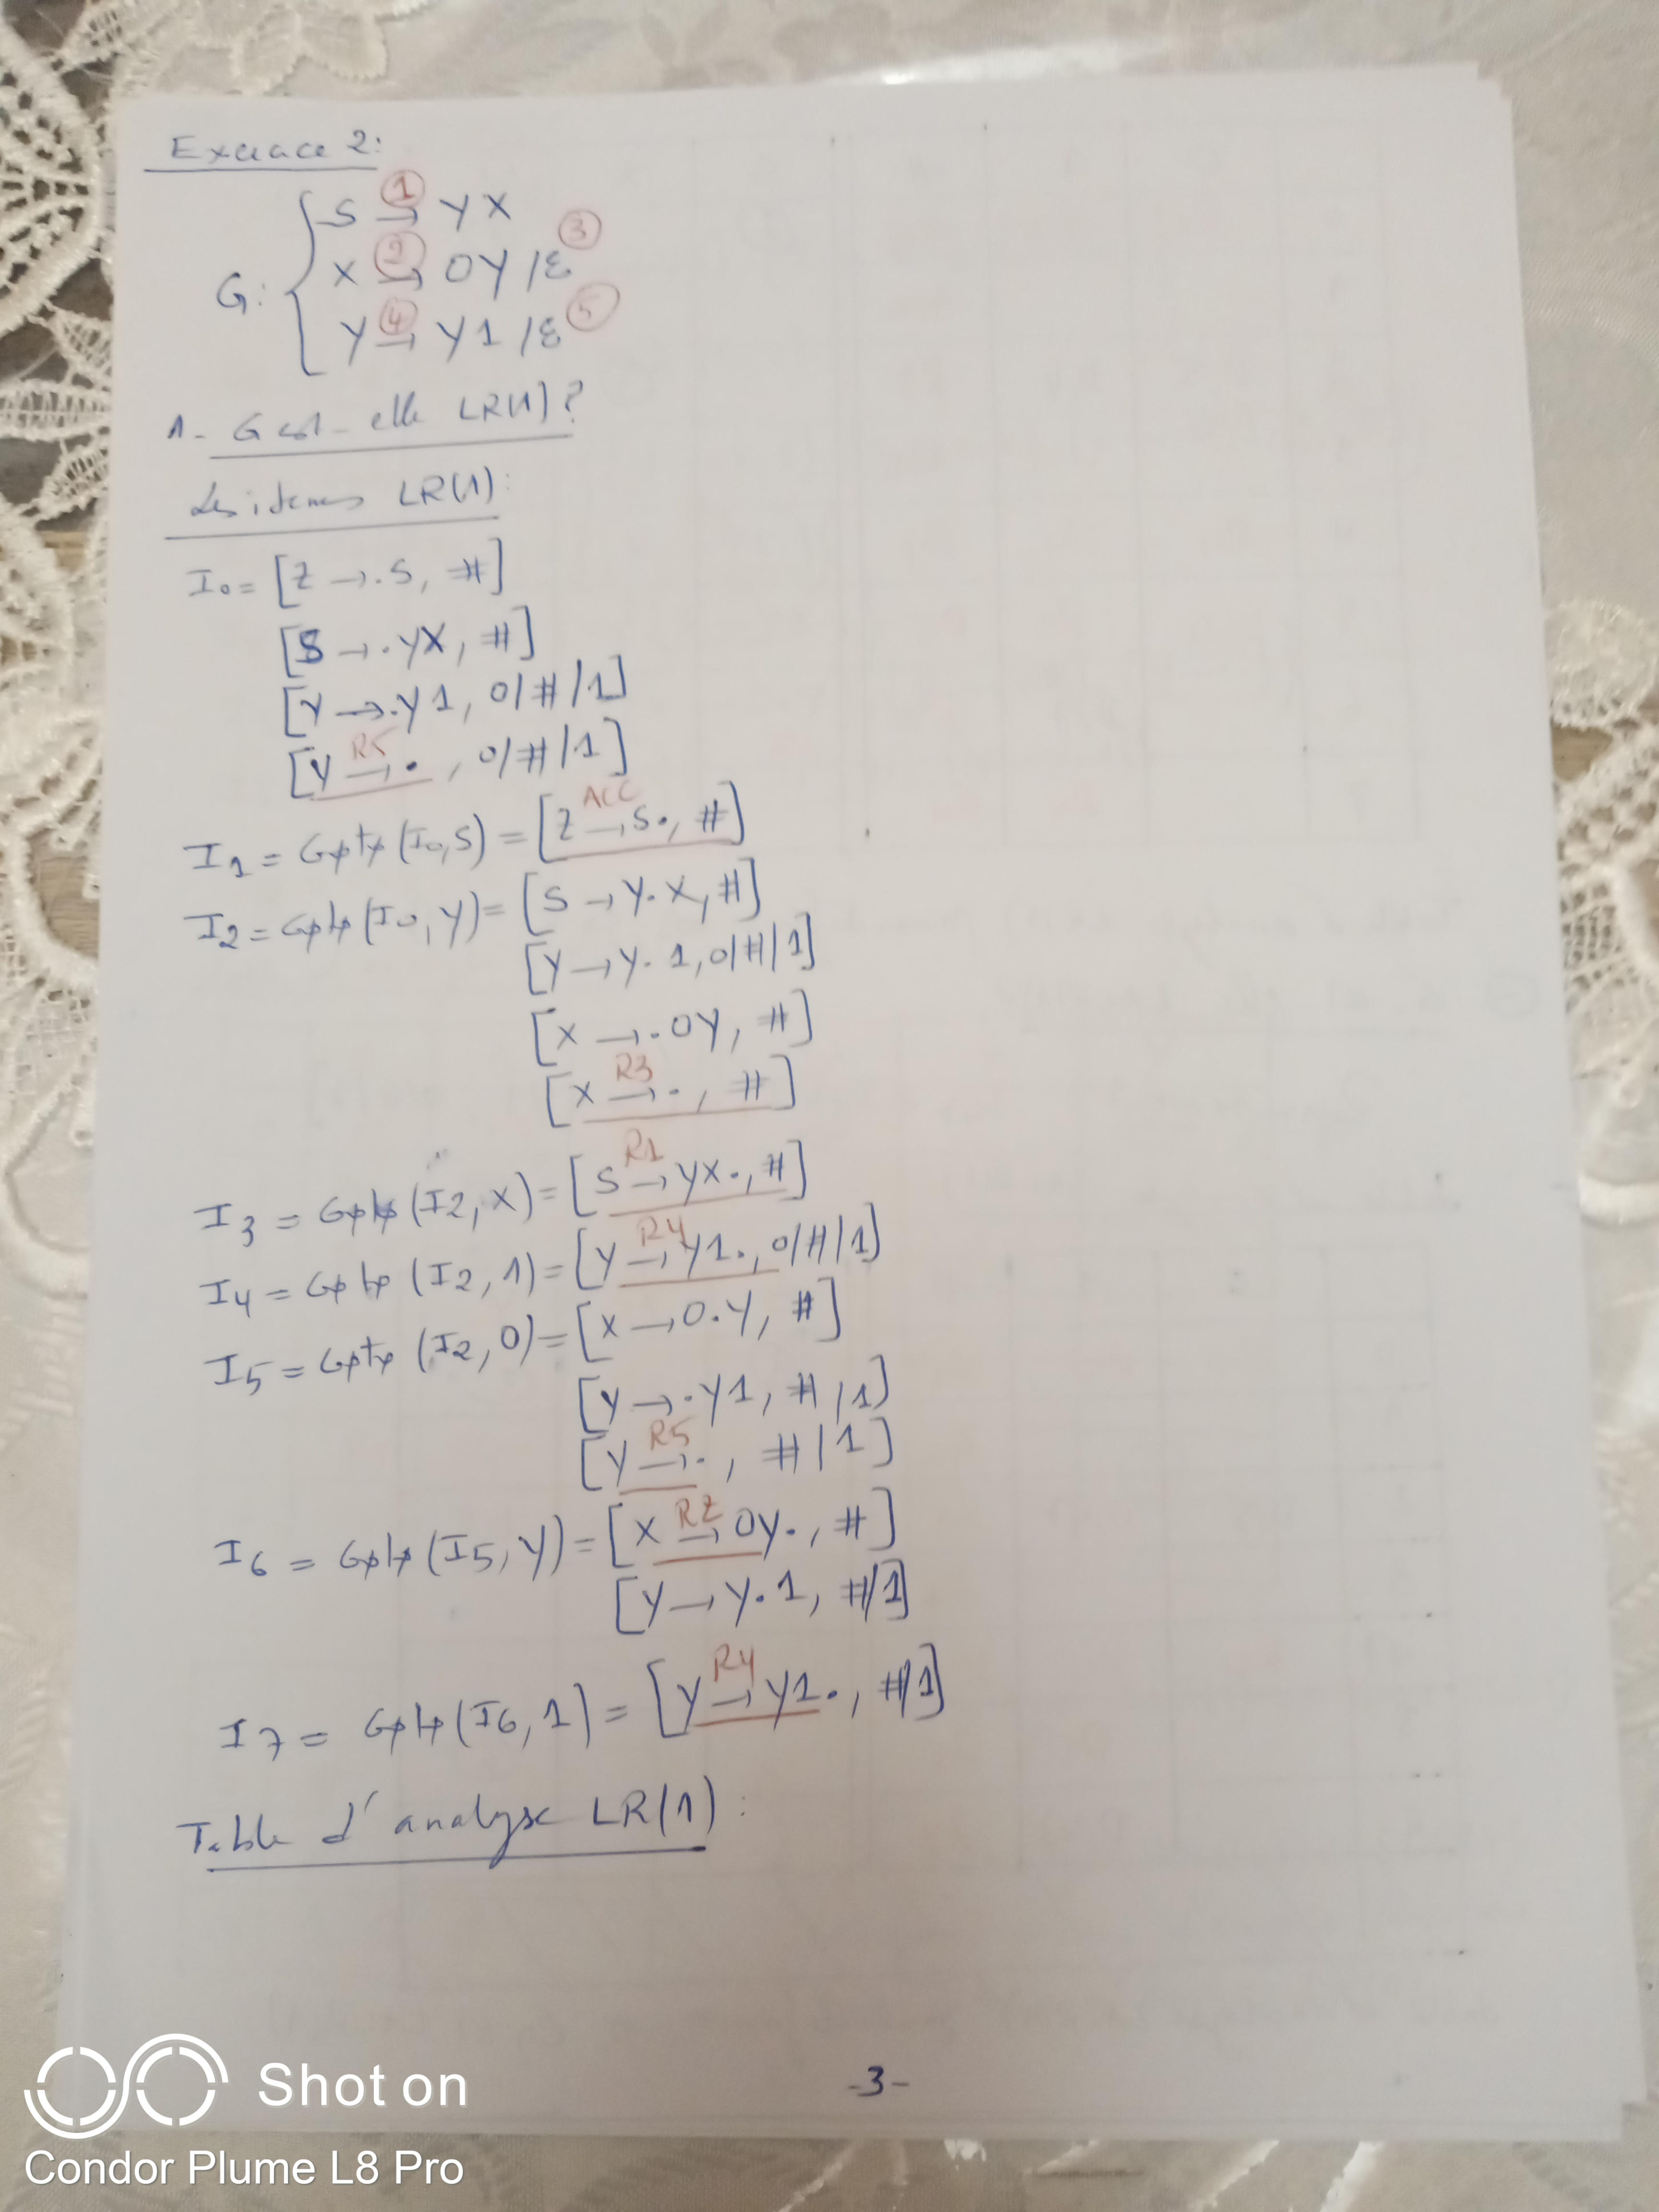 Exercice 2:
① ③
S → YX
② 
G: X → 0Y /ε
④ ⑤
Y → Y1 /ε
1- G est-elle LR(1)?
Les items LR(1):
I0 = [Z → .S, #]
[S → .YX, #]
[Y → .Y1, 0/#/1]
R5
[Y → . , 0/#/1]
ACC
I1 = Goto(I0,S) = [Z → S., #]
I2 = Goto(I0,Y) = [S → Y.X, #]
[Y → Y.1, 0/#/1]
[X → .0Y, #]
R3
[X → . , #]
R1
I3 = Goto(I2,X) = [S → YX., #]
R4
I4 = Goto(I2,1) = [Y → Y1., 0/#/1]
I5 = Goto(I2,0) = [X → 0.Y, #]
[Y → .Y1, #/1]
R5
[Y → . , #/1]
R2
I6 = Goto(I5,Y) = [X → 0Y. , #]
[Y → Y.1, #/1]
R4
I7 = Goto(I6,1) = [Y → Y1. , #/1]
Table d'analyse LR(1):
-3-
Shot on
Condor Plume L8 Pro